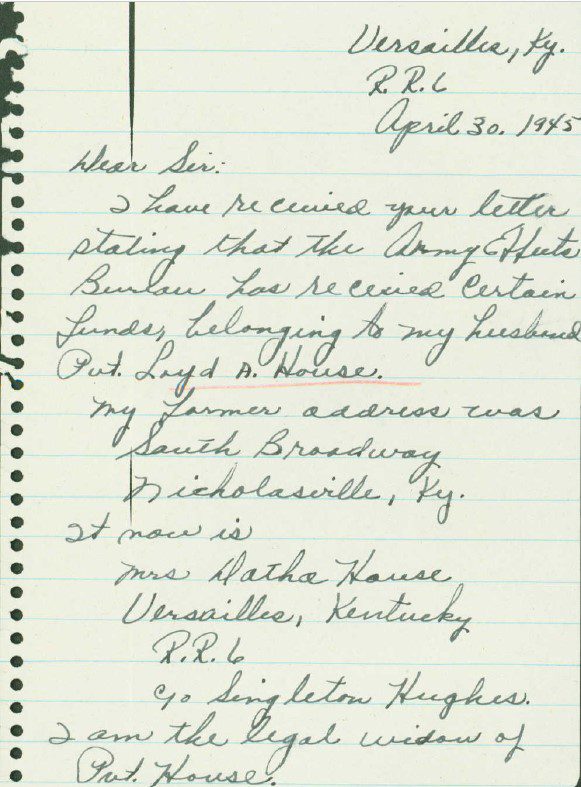 Versailles, Ky.
R.R. 6
April 30. 1945
Dear Sir:
I have received your letter
stating that the Army Effects
Bureau has received certain
funds, belonging to my husband
Pvt. Loyd A. House.
My former address was
South Broadway
Nicholasville, Ky.
It now is
Mrs Datha House
Versailles, Kentucky
R.R. 6
c/o Singleton Hughes.
I am the legal widow of
Pvt. House.